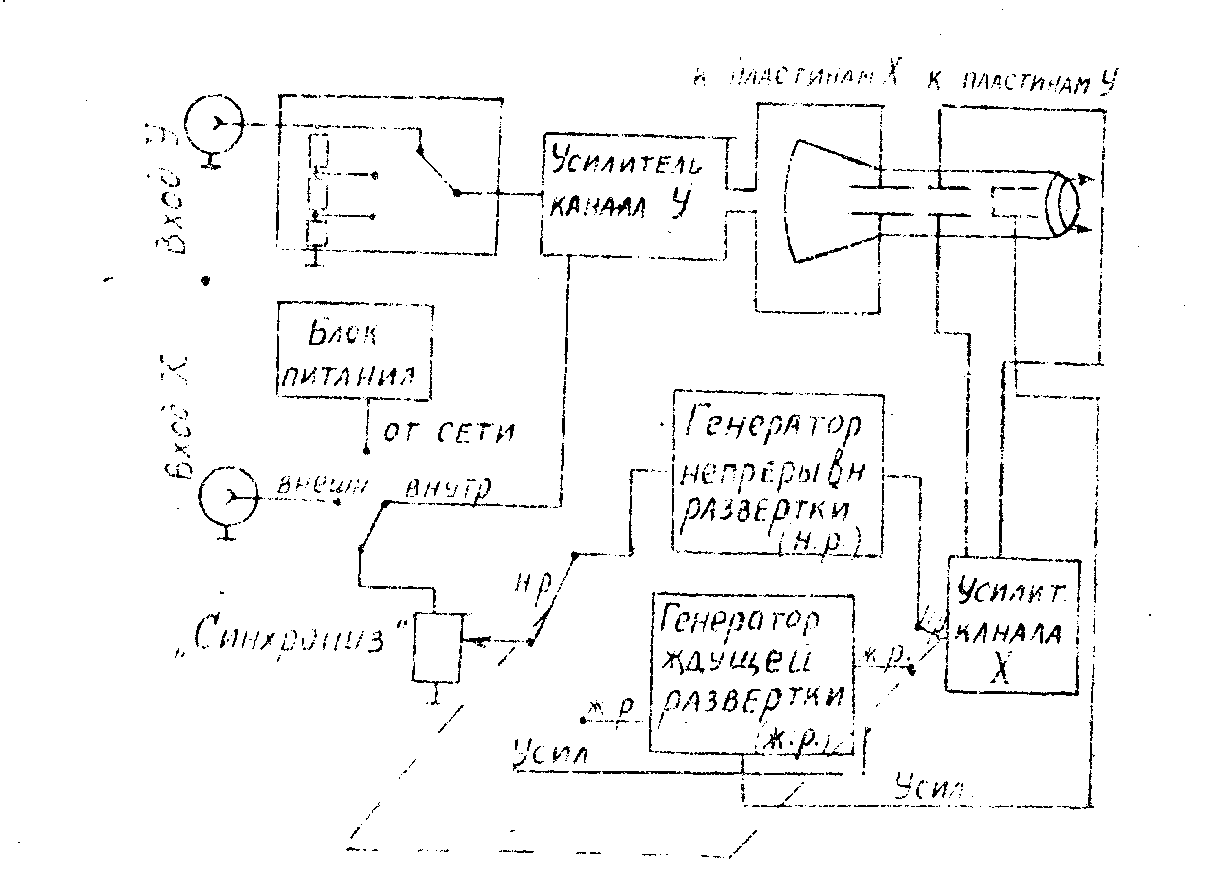 К ПЛАСТИНАМ X К ПЛАСТИНАМ У
Вход У
УСИЛИТЕЛЬ
КАНАЛА У
БЛОК
ПИТАНИЯ
Вход X
ОТ СЕТИ
внешн
внутр
Генератор
непрерывн
развертки
(н.р.)
н р
„Синхрониз“
Генератор
ждущей
развертки
(ж.р.)
ж.р.
ж р
Усилит.
канала
X
Усил
Усил.